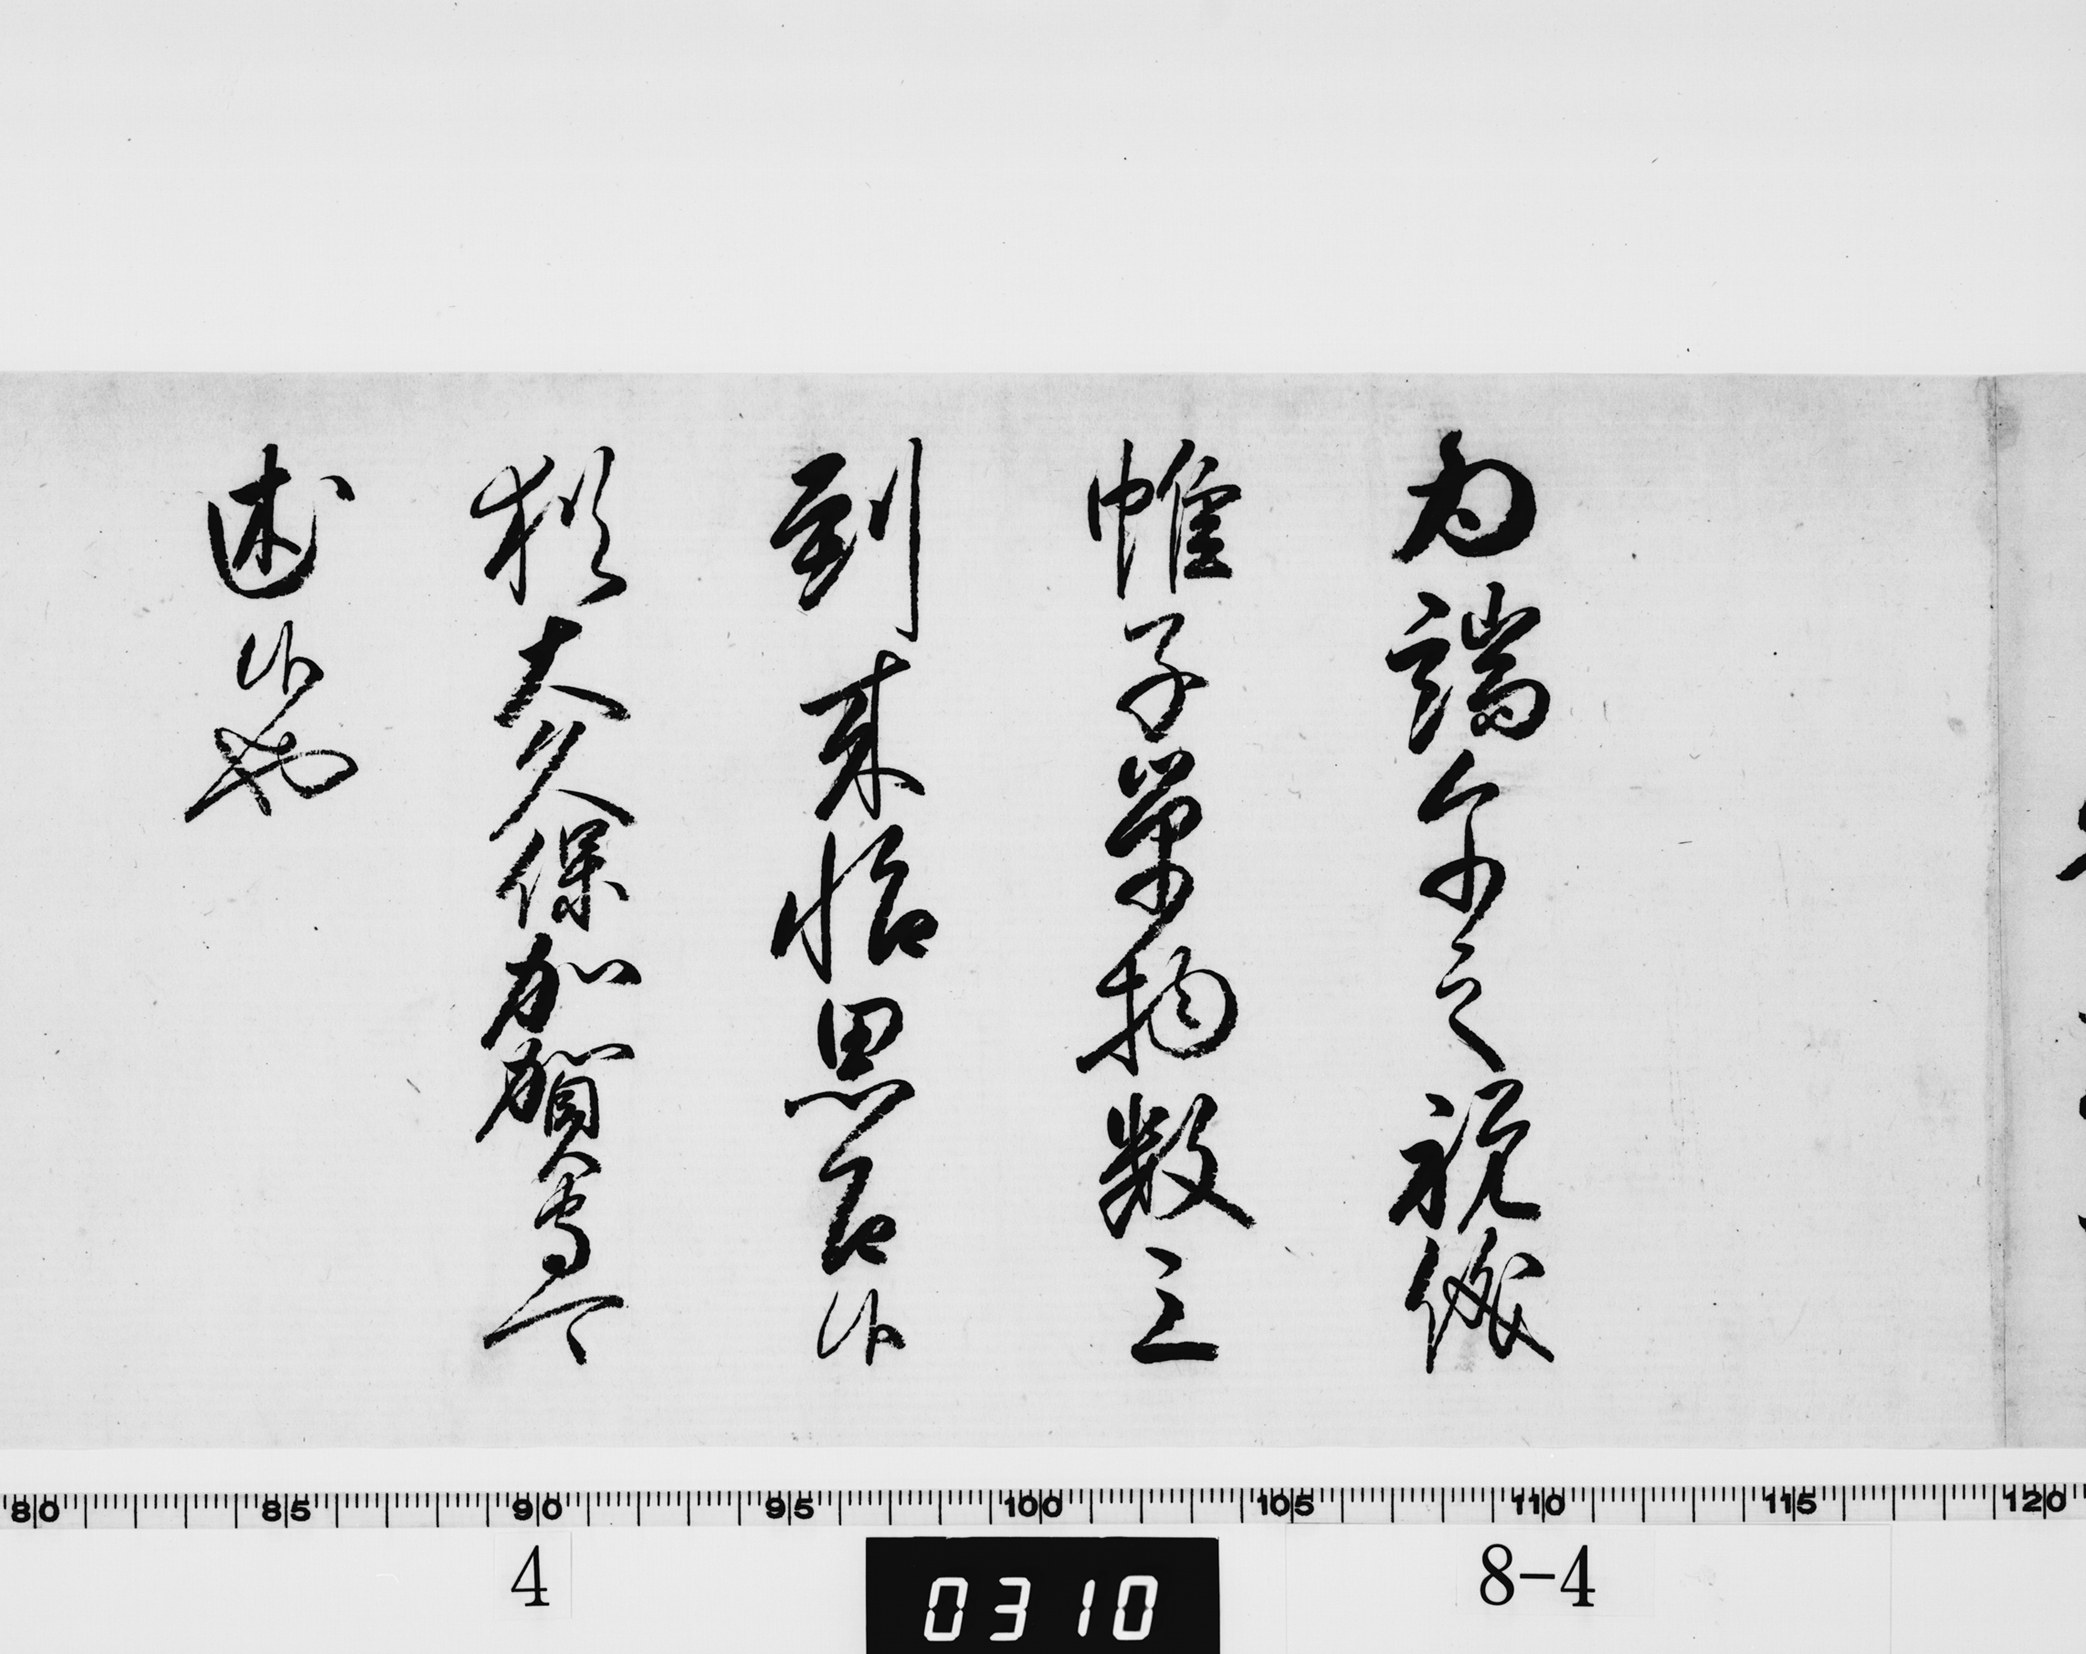 為端午之祝儀
帷子単物数三
到来怡思召候
猶大久保加賀守可
述候也
80 85 90 95 100 105 110 115 120
4 0310 8-4